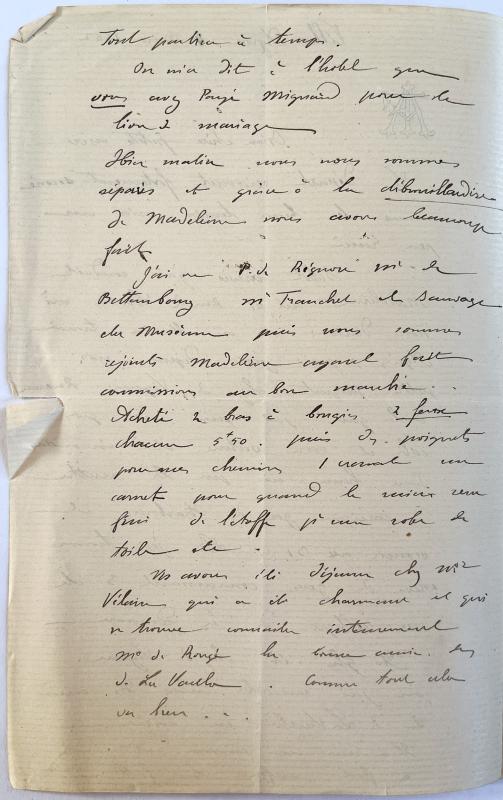 Tout partira à temps.
On m'a dit à l'hotel que
vous avez Payé Mignard pour le
lion de mariage
Hier matin nous nous sommes
séparés et grâce à la débrouillardise
de Madeleine nous avons beaucoup
fait
J'ai vu P. de Régnon Mr de
Bettembourg Mr Tranchet et Sauvage
du Muséum puis nous sommes
rejoints Madeleine ayant fait
commissions au bon marché . .
Acheté 2 bras à bougies 2
chacun 5f50 . puis des poignets
pour mes chemises 1 cravate un
carnet pour quand le mien sera
fini de l'étoffe pr une robe de
toile etc .
Ns avons été déjeuner chez Mme
qui a été charmante et qui
se trouve connaitre intimement
Me de Rougé la bonne amie des
de La . Comme tout cela
va bien . . .